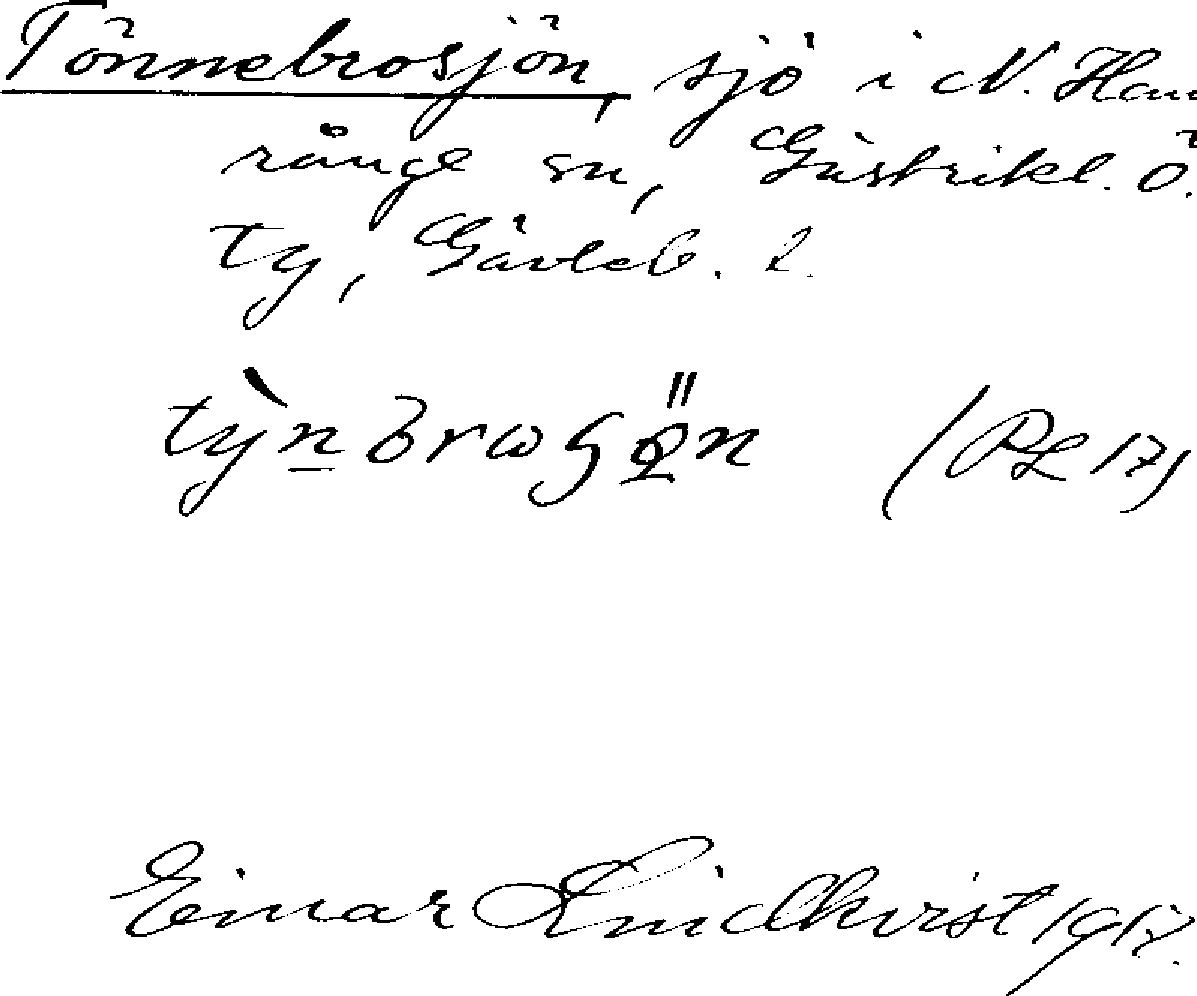 Tönnebrosjön, sjö i N. Ham
rånge sn, Gästrikl. Ö.
tg, Gävleb. l.
(PL 17)
Einar Lindkvist 1917.